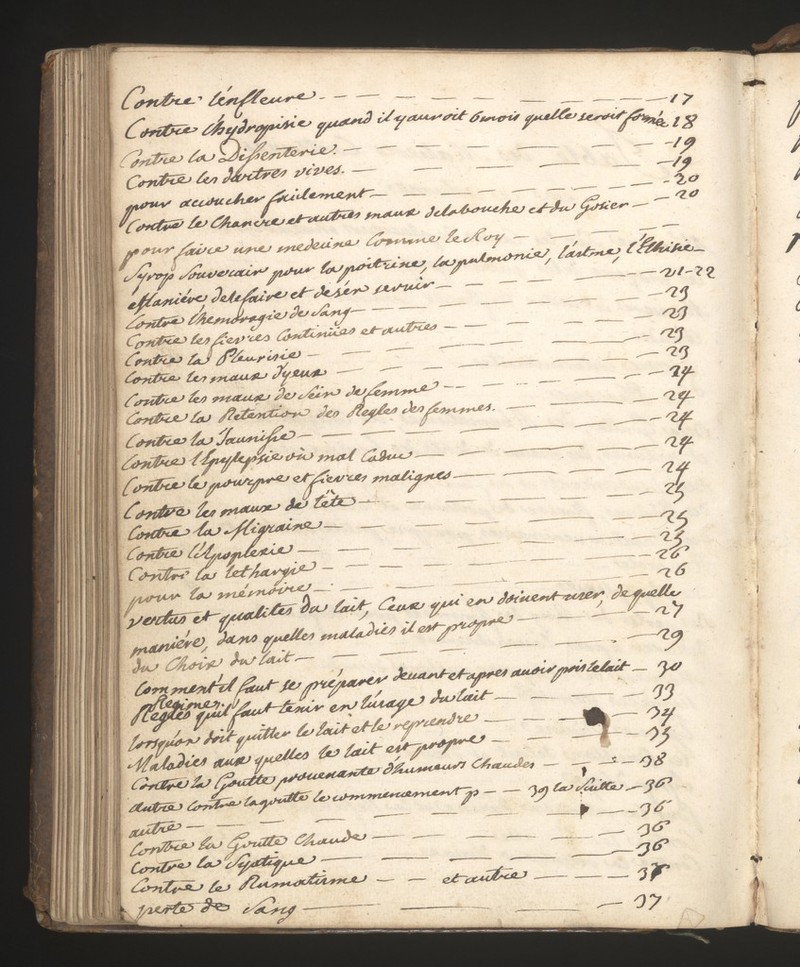 Contre l'énfleure — 17
Contre l'hydropisie quand il y auroit 6 mois quelle seroit formée 18
Contre la Dissenterie — 19
Contre les dartres vives. — 19
pour accoucher facilement — 20
Contre le Chancre et autres maux delabouche et du Gosier — 20
pour faire une medecine Comme le Roy —
Syrop Souverain pour la poitrine, la pulmonie, l'astme, l'Ethisie
Maniére delefaire et desén servir — 21-22
Contre l'hemoragie de Sang — 23
Contre les fievres Continües et autres — 23
Contre la Pleurisie — 23
Contre les maux d'yeux — 23
Contre les maux de Sein de femme — 24
Contre la Retention des Regles des femmes. — 24
Contre la Jaunisse — 24
Contre l'Epeylepsie où mal Caduc — 24
Contre le pourpre et fievres malignes — 24
Contre les maux de tête — 25
Contre la Migraine — 25
Contre l'Apoplexie — 25
Contre la lethargie — 26
pour la mémoire — 26
vertus et qualites Du lait, Ceux qui en doivent user, de quelle
maniére, dans quelles maladies il est propre — 27
du Choix du lait — 29
Comment il faut se préparer devant et apres avoir pris le lait — 30
Regime
Regles quil faut tenir en l'usage du lait — 33
lorsquón doit quitter le lait et le reprendre — 34
Maladies aux quelles le lait est propre — 35
Contre la Goutte provenante d'humeurs Chaudes — 38
autre Contre lagoutte le commencement p — 39 la Suitte — 36
autre — 36
Contre la Goutte Chaude — 36
Contre la Syatique — 36
Contre le Rumatisme — et autre — 37
perte de Sang — 37